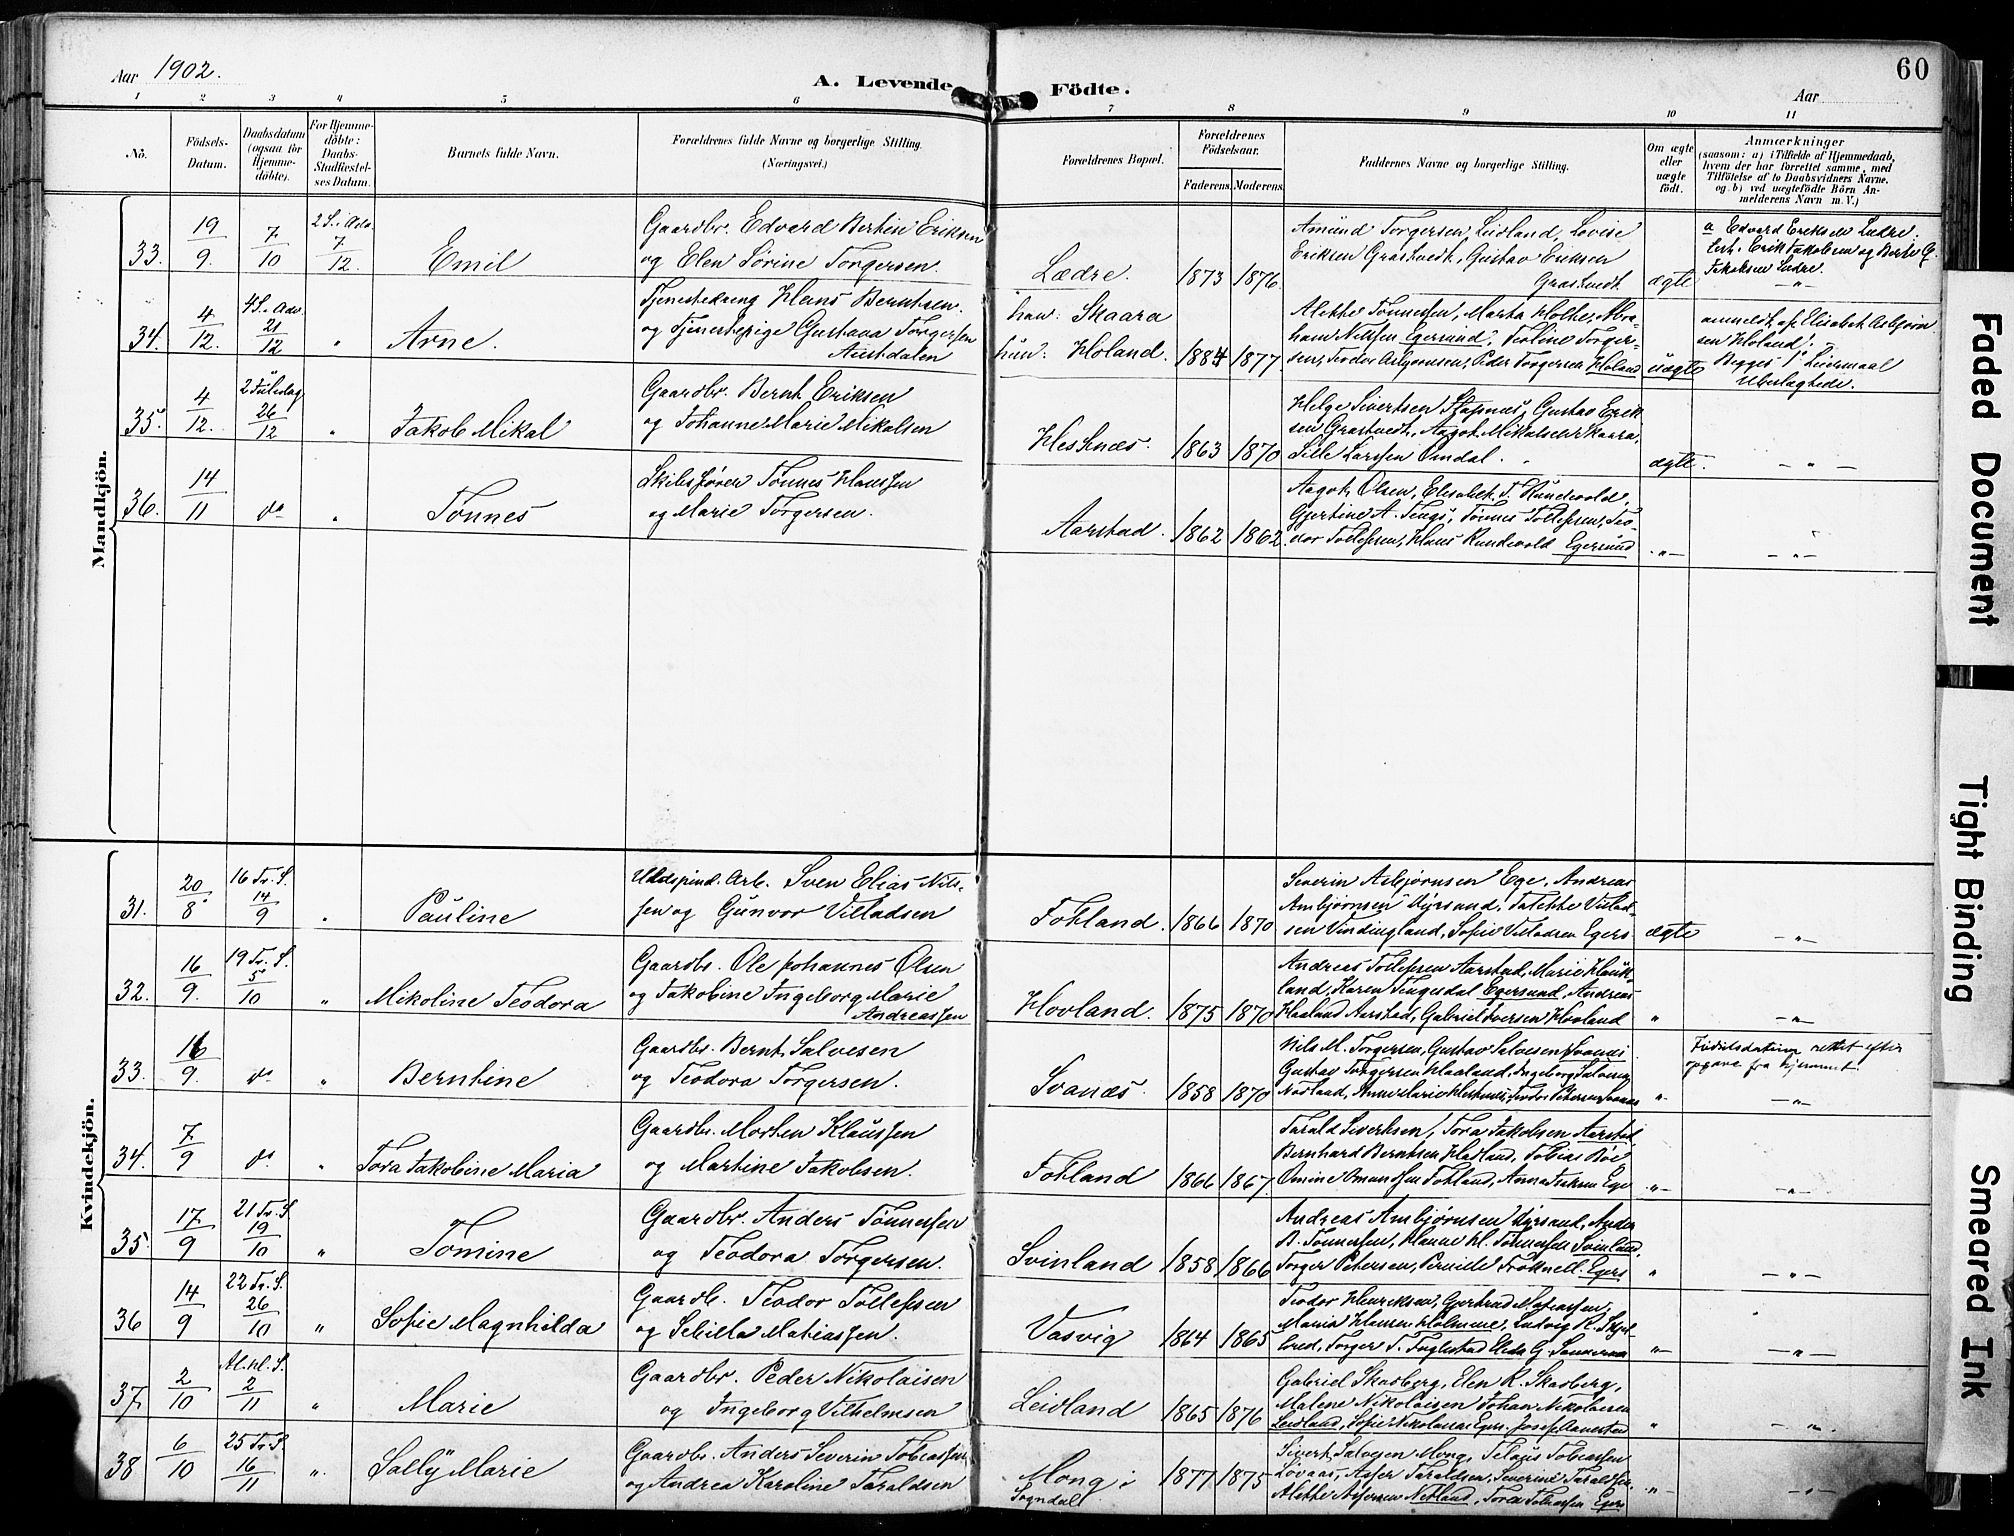 Aar 1902.
A. Levende Födte.
Aar
60
1 2 3 4 5 6 7 8 9 10 11
No.
Födsels-Datum.
Daabsdatum (ogsaa for Hjemme-döbte).
For Hjemme-döbte: Daabs-Stadfæstel-ses Datum.
Barnets fulde Navn.
Forældrenes fulde Navne og borgerlige Stilling.
(Næringsvei.)
Forældrenes Bopæl.
Forældrenes Födselsaar.
Faderens. Moderens.
Faddernes Navne og borgerlige Stilling.
Om ægte eller uægte födt.
Anmærkninger
(saasom: a) i Tilfælde af Hjemmedaab,
hvem der har forrettet samme, med
Tilföielse af to Daabsvidners Navne.
og b) ved uægtefödte Börn An-
melderens Navn m. V.)
Mandkjön.
33. 19/9 7/10 2 S. Adv. 7/12 Emil
Gaardbr. Edvard Bertin Eriksen
og Elen Sørine Torgersen.
Lædre. 1873 1876
Amund Torgersen Leidland, Lovise
Eriksen Grastvedt, Gustav Eriksen
Grastvedt ægte
a Edvard Eriksen Lædre.
test. Erik Jakobsen og Berte G.
Jakobsen Lædre.
34. 4/12. 4 S. Adv. 21/12 " Arne.
Tjenestedreng Hans Berntsen.
og Tjenestepige Gustava Torgersen
Austdalen
han: Skaara
hun: Holand. 1884 1877
Alette Tønnesen, Marta Holte, Abra-
ham Nilssen Egersund, Teoline Torger-
sen, Teodor Asbjørnsen, Peder Torgersen Holand uægte
anmeldt af Elisabet Asbjørn
sen Holand.
Begges 1ste Leiermaal
35. 4/12. 2 Juledag 26/12 " Jakob Mikal
Gaardbr. Bernt Eriksen
og Johanne Marie Mikalsen
Hestnæs. 1863 1870
Helge Sivertsen Stapnes, Gustav Erik
sen Grastvedt, Aagot Mikalsen Skaara,
Sille Larssen Omdal. ægte. — " —
36. 14/11 do " Tønnes
Skibsfører Tønnes Hanssen
og Marie Torgersen.
Aarstad. 1862 1862.
Aagot Olsen, Elisabet T. Hundvold,
Gjertine A. Tengs, Tønnes Tollefsen, Teo-
dor Tollefsen, Hans Rundvold Egersund — " — — " —
Kvindekjön.
31. 20/8 16 Tr. S. 14/9 " Pauline
Uldspind. Arb. Sven Elias Nils-
sen og Gunvor Villadsen
Fotland. 1866 1870
Severin Asbjørnsen Ege, Andreas
Ambjørnsen Hyrsand, Talette Villad-
sen Vindingland, Sofie Villadsen Egers ægte — " —
32. 16/9. 19 Tr. S. 5/10 " Mikoline Teodora
Gaardbr. Ole Johannes Olsen
og Jakobine Ingeborg Marie
Andreassen
Hovland. 1875 1870
Andreas Tollefsen Aarstad, Marie Hauk-
land, Karen Tengesdal Egersund, Andreas
Haaland Aarstad, Gabriel Iversen Hovland " — " —
33. 16/9. do " Berntine
Gaardbr. Bernt Salvesen
og Teodora Torgersen.
Svanæs. 1858 1870
Nils M. Torgersen, Gustav Salvesen Svanæs
Gustav Torgersen Haaland, Ingeborg Salvesen
Nodland, Anne Marie Hestnes, Teodor Petersen Svanæs "
Fødselsdatum rettet efter
opgave fra hjemmet.
— " —
34. 7/9 do " Tora Jakobine Maria
Gaardbr. Morten Klaussen
og Martine Jakobsen.
Fotland 1866 1867.
Tarald Sivertsen, Tora Jakobsen Aarstad,
Bernhard Berntsen Hadland, Tobias Bøe
Omine Omundsen Fotland, Anna Isaksen Ege — " — — " —
35. 17/9 21 Tr. S. 19/10 " Tomine
Gaardbr. Anders Tønnessen
og Teodora Torgersen.
Svinland 1858 1866
Andreas Ambjørnsen Hyrsand, Anders
B. Tønnessen, Hanne H. Tønnessen Svinland,
Torger Petersen, Pernille Trøknell. Egers " — " —
36 14/9 22 Tr. S. 26/10 " Sofie Magnhilda
Gaardb. Teodor Tollefsen
og Sebilla Matiassen.
Vasvig 1864 1865
Teodor Henriksen, Gertrud Matiassen,
Maria Hansen Holmene, Ludvig R. Skjel-
bred, Torger T. Fuglestad — " — — " —
37. 2/10 Al. Hl. S. 2/11 " Marie
Gaardbr. Peder Nikolaisen
og Ingeborg Vilhelmsen
Leidland 1865 1876
Gabriel Skadberg, Elen K. Skadberg,
Malene Nikolaisen Johan Nikolaisen
Leidland, Sofie Nikolaisen Egers. " — " —
38 6/10 25 Tr. S. 16/11 " Sally Marie
Gaardbr. Anders Severin Tobiassen
og Andrea Karoline Taraldsen
Mong i
Sogndal. 1877 1875
Sivert Salvesen Mong, Telaus Tobiassen
Løvaas, Asser Taraldsen, Severine Taraldsen,
Alette Assersen Netland, Tora Tobiassen Egers — " — — " —
Faded Document
Tight Binding
Smeared Ink